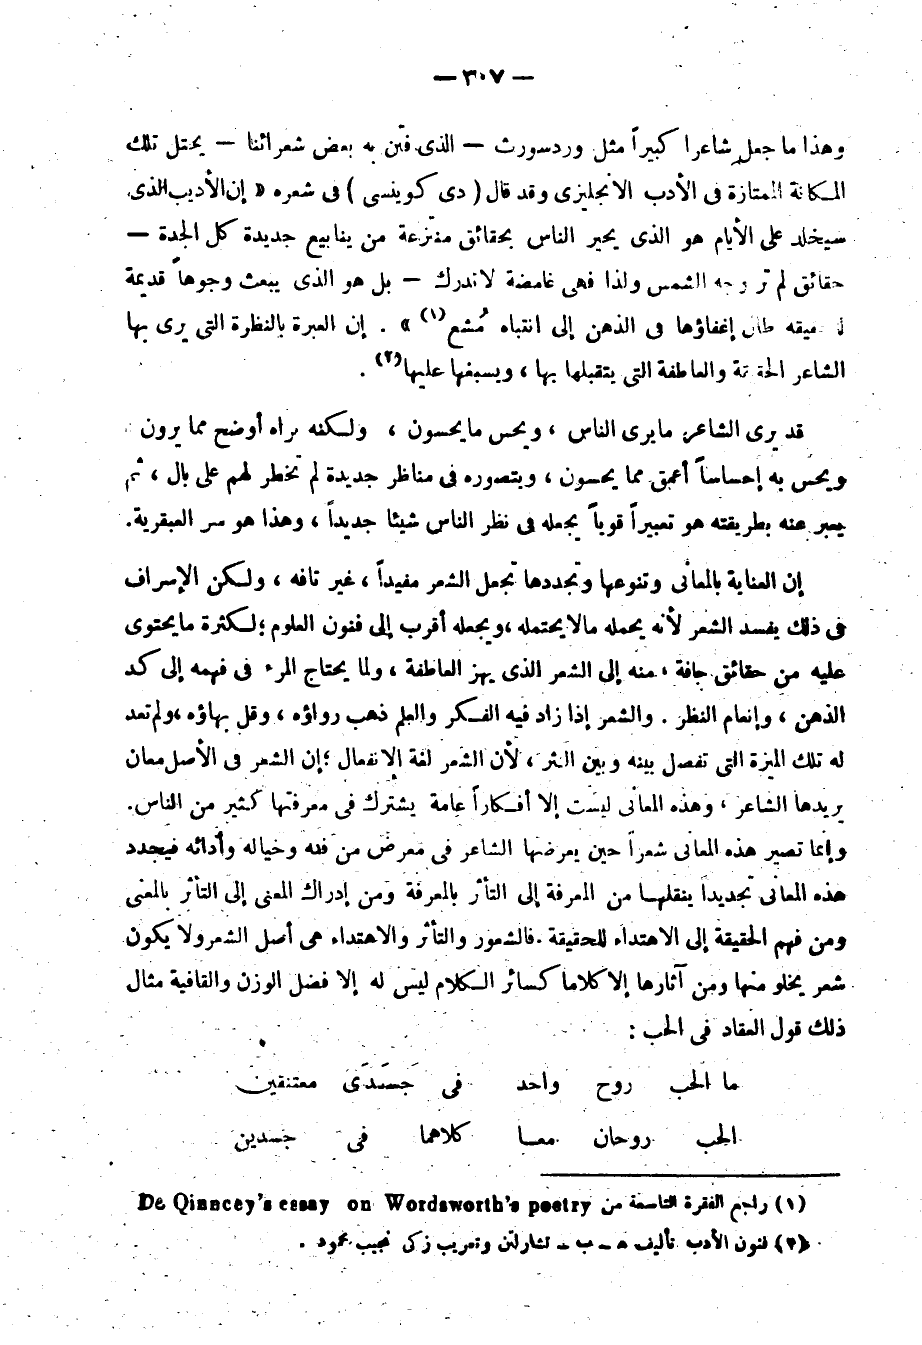 — ٣٠٧ —
وهذا ما جعل شاعرا كبيراً مثل وردسورث — الذى فتن به بعض شعرائنا — يحتل تلك
المكانة الممتازة فى الأدب الانجليزى وقد قال ( دى كوينسى ) فى شعره « إن الأديب الذى
سيخلد على الأيام هو الذى يحير الناس بحقائق منتزعة من ينابيع جديدة كل الجدة —
حقائق لم تر وجه الشمس ولذا فهى غامضة لا تدرك — بل هو الذى يبعث وجوهاً قديمة
طال إغفاؤها فى الذهن إلى انتباه مُشع (١) » . إن العبرة بالنظرة التى يرى بها
الشاعر الحقيقة والعاطفة التى يتقبلها بها ، ويسبغها عليها(٢) .
قد يرى الشاعر ما يرى الناس ، ويحس ما يحسون ، ولكنه يراه أوضح مما يرون
ويحس به إحساساً أعمق مما يحسون ، ويتصوره فى مناظر جديدة لم تخطر لهم على بال ، ثم
يعبر عنه بطريقته هو تعبيراً قوياً يجعله فى نظر الناس شيئا جديداً ، وهذا هو سر العبقرية.
إن العناية بالمعانى وتنوعها وتجددها تجعل الشعر مفيداً ، غير تافه ، ولكن الإسراف
فى ذلك يفسد الشعر لأنه يحمله مالا يحتمله ،ويجعله أقرب إلى فنون العلوم ؛لكثرة ما يحتوى
عليه من حقائق جافة ، منه إلى الشعر الذى يهز العاطفة ، ولما يحتاج المرء فى فهمه إلى كد
الذهن ، وإنعام النظر . والشعر إذا زاد فيه الفكر والعلم ذهب رواؤه ، وقل بهاؤه ،ولم تعد
له تلك الميزة التى تفصل بينه وبين النثر ، لأن الشعر لغة الانفعال ؛إن الشعر فى الأصل معان
يريدها الشاعر ، وهذه المعانى ليست إلا أفكاراً عامة يشترك فى معرفتها كثير من الناس.
وإنما تصير هذه المعانى شعراً حين يعرضها الشاعر فى معرض من فنه وخياله وأدائه فيجدد
هذه المعانى تجديداً ينقلها من المعرفة إلى التأثر بالمعرفة ومن إدراك المعنى إلى التأثر بالمعنى
ومن فهم الحقيقة إلى الاهتداء للحقيقة .فالشعور والتأثر والاهتداء هى أصل الشعر ولا يكون
شعر يخلو منها ومن آثارها إلا كلاما كسائر الكلام ليس له إلا فضل الوزن والقافية مثال
ذلك قول العقاد فى الحب :
ما الحب روح واحد فى جَسَدَى معتنقين
الحب روحان معا كلاهما فى جسدين
(١) راجع الفقرة التاسعة من De Qinncey's essay on Wordsworth's poetry
(٢) فنون الأدب تأليف ه ـ ب ـ تشارلتن وتعريب زكى نجيب محمود .